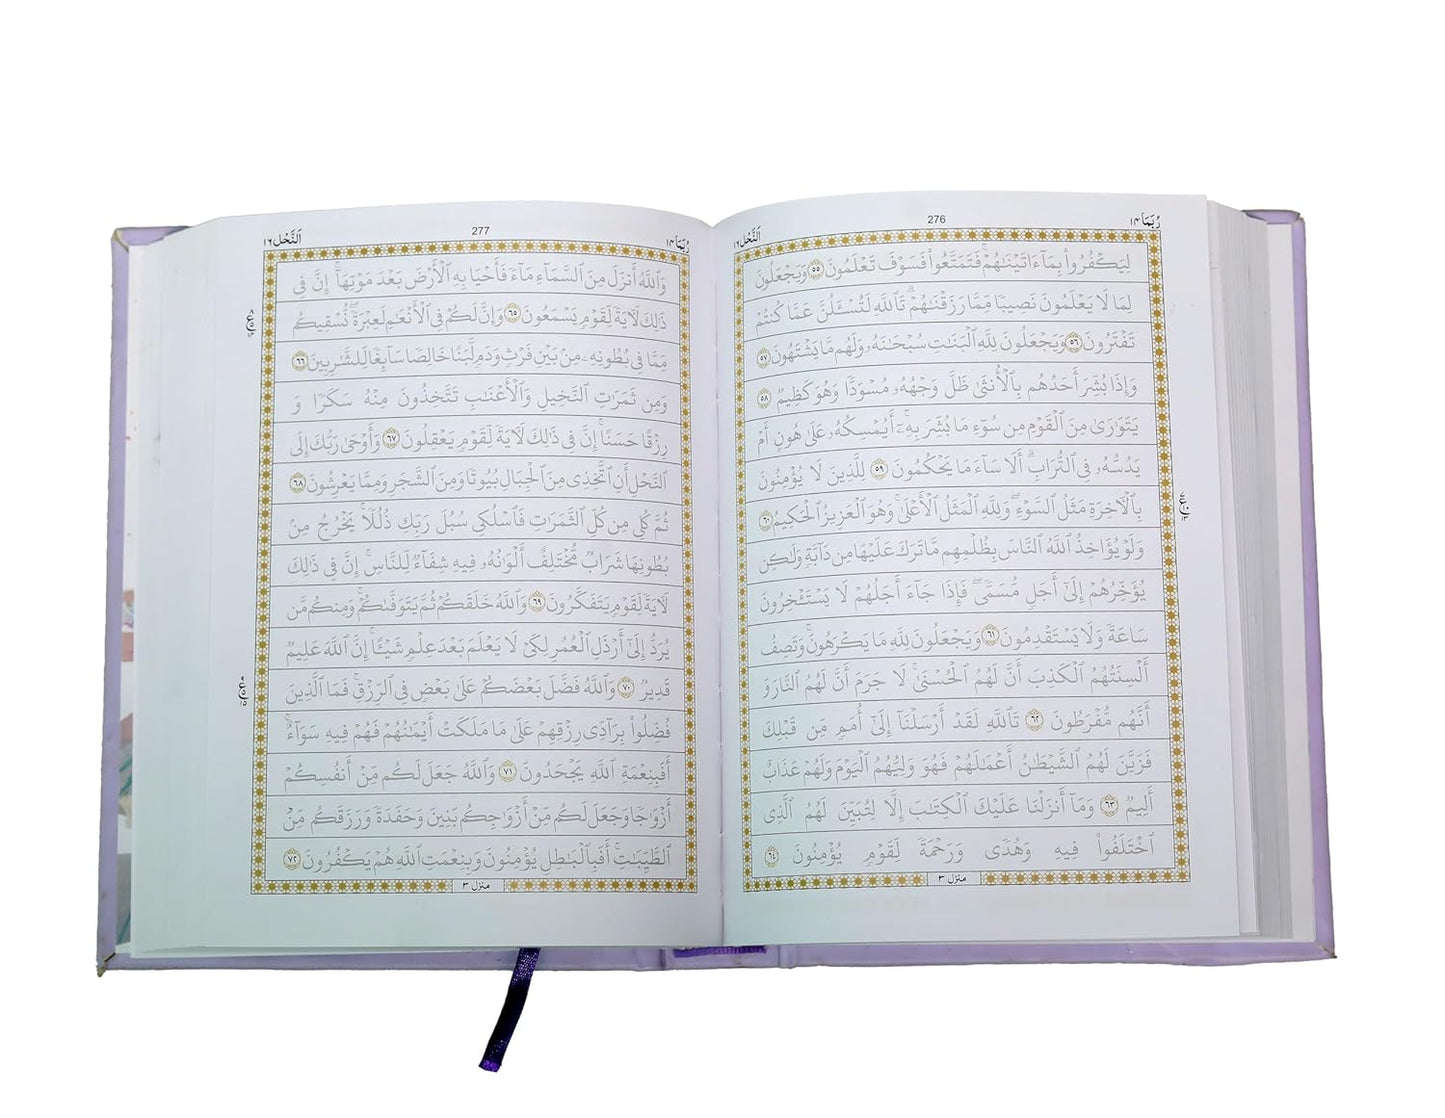 رُبَمَا ١٤
276
اَلنَّحْل ١٦
لِيَكْفُرُوا۟ بِمَآ ءَاتَيْنَـٰهُمْ ۚ فَتَمَتَّعُوا۟ فَسَوْفَ تَعْلَمُونَ ٥٥ وَيَجْعَلُونَ
لِمَا لَا يَعْلَمُونَ نَصِيبًا مِّمَّا رَزَقْنَـٰهُمْ ۗ تَٱللَّهِ لَتُسْـَٔلُنَّ عَمَّا كُنتُمْ
تَفْتَرُونَ ٥٦ وَيَجْعَلُونَ لِلَّهِ ٱلْبَنَـٰتِ سُبْحَـٰنَهُۥ وَلَهُم مَّا يَشْتَهُونَ ٥٧
وَإِذَا بُشِّرَ أَحَدُهُم بِٱلْأُنثَىٰ ظَلَّ وَجْهُهُۥ مُسْوَدًّا وَهُوَ كَظِيمٌ ٥٨
يَتَوَٰرَىٰ مِنَ ٱلْقَوْمِ مِن سُوٓءِ مَا بُشِّرَ بِهِۦٓ ۚ أَيُمْسِكُهُۥ عَلَىٰ هُونٍ أَمْ
يَدُسُّهُۥ فِى ٱلتُّرَابِ ۗ أَلَا سَآءَ مَا يَحْكُمُونَ ٥٩ لِلَّذِينَ لَا يُؤْمِنُونَ
بِٱلْـَٔاخِرَةِ مَثَلُ ٱلسَّوْءِ ۖ وَلِلَّهِ ٱلْمَثَلُ ٱلْأَعْلَىٰ ۚ وَهُوَ ٱلْعَزِيزُ ٱلْحَكِيمُ ٦٠
وَلَوْ يُؤَاخِذُ ٱللَّهُ ٱلنَّاسَ بِظُلْمِهِم مَّا تَرَكَ عَلَيْهَا مِن دَآبَّةٍ وَلَـٰكِن
يُؤَخِّرُهُمْ إِلَىٰٓ أَجَلٍ مُّسَمًّى ۖ فَإِذَا جَآءَ أَجَلُهُمْ لَا يَسْتَـْٔخِرُونَ
سَاعَةً وَلَا يَسْتَقْدِمُونَ ٦١ وَيَجْعَلُونَ لِلَّهِ مَا يَكْرَهُونَ ۚ وَتَصِفُ
أَلْسِنَتُهُمُ ٱلْكَذِبَ أَنَّ لَهُمُ ٱلْحُسْنَىٰ ۖ لَا جَرَمَ أَنَّ لَهُمُ ٱلنَّارَ وَ
أَنَّهُم مُّفْرَطُونَ ٦٢ تَٱللَّهِ لَقَدْ أَرْسَلْنَآ إِلَىٰٓ أُمَمٍ مِّن قَبْلِكَ
فَزَيَّنَ لَهُمُ ٱلشَّيْطَـٰنُ أَعْمَـٰلَهُمْ فَهُوَ وَلِيُّهُمُ ٱلْيَوْمَ وَلَهُمْ عَذَابٌ
أَلِيمٌ ٦٣ وَمَآ أَنزَلْنَا عَلَيْكَ ٱلْكِتَـٰبَ إِلَّا لِتُبَيِّنَ لَهُمُ ٱلَّذِى
ٱخْتَلَفُوا۟ فِيهِ وَهُدًى وَرَحْمَةً لِّقَوْمٍ يُؤْمِنُونَ ٦٤
منزل ٣
رُبَمَا ١٤
277
اَلنَّحْل ١٦
وَٱللَّهُ أَنزَلَ مِنَ ٱلسَّمَآءِ مَآءً فَأَحْيَا بِهِ ٱلْأَرْضَ بَعْدَ مَوْتِهَآ ۚ إِنَّ فِى
ذَٰلِكَ لَـَٔايَةً لِّقَوْمٍ يَسْمَعُونَ ٦٥ وَإِنَّ لَكُمْ فِى ٱلْأَنْعَـٰمِ لَعِبْرَةً ۖ نُّسْقِيكُم
مِّمَّا فِى بُطُونِهِۦ مِنۢ بَيْنِ فَرْثٍ وَدَمٍ لَّبَنًا خَالِصًا سَآئِغًا لِّلشَّـٰرِبِينَ ٦٦
وَمِن ثَمَرَٰتِ ٱلنَّخِيلِ وَٱلْأَعْنَـٰبِ تَتَّخِذُونَ مِنْهُ سَكَرًا وَ
رِزْقًا حَسَنًا ۗ إِنَّ فِى ذَٰلِكَ لَـَٔايَةً لِّقَوْمٍ يَعْقِلُونَ ٦٧ وَأَوْحَىٰ رَبُّكَ إِلَى
ٱلنَّحْلِ أَنِ ٱتَّخِذِى مِنَ ٱلْجِبَالِ بُيُوتًا وَمِنَ ٱلشَّجَرِ وَمِمَّا يَعْرِشُونَ ٦٨
ثُمَّ كُلِى مِن كُلِّ ٱلثَّمَرَٰتِ فَٱسْلُكِى سُبُلَ رَبِّكِ ذُلُلًا ۚ يَخْرُجُ مِنۢ
بُطُونِهَا شَرَابٌ مُّخْتَلِفٌ أَلْوَٰنُهُۥ فِيهِ شِفَآءٌ لِّلنَّاسِ ۗ إِنَّ فِى ذَٰلِكَ
لَـَٔايَةً لِّقَوْمٍ يَتَفَكَّرُونَ ٦٩ وَٱللَّهُ خَلَقَكُمْ ثُمَّ يَتَوَفَّىٰكُمْ ۚ وَمِنكُم مَّن
يُرَدُّ إِلَىٰٓ أَرْذَلِ ٱلْعُمُرِ لِكَىْ لَا يَعْلَمَ بَعْدَ عِلْمٍ شَيْـًٔا ۚ إِنَّ ٱللَّهَ عَلِيمٌ
قَدِيرٌ ٧٠ وَٱللَّهُ فَضَّلَ بَعْضَكُمْ عَلَىٰ بَعْضٍ فِى ٱلرِّزْقِ ۚ فَمَا ٱلَّذِينَ
فُضِّلُوا۟ بِرَآدِّى رِزْقِهِمْ عَلَىٰ مَا مَلَكَتْ أَيْمَـٰنُهُمْ فَهُمْ فِيهِ سَوَآءٌ ۚ
أَفَبِنِعْمَةِ ٱللَّهِ يَجْحَدُونَ ٧١ وَٱللَّهُ جَعَلَ لَكُم مِّنْ أَنفُسِكُمْ
أَزْوَٰجًا وَجَعَلَ لَكُم مِّنْ أَزْوَٰجِكُم بَنِينَ وَحَفَدَةً وَرَزَقَكُم مِّنَ
ٱلطَّيِّبَـٰتِ ۚ أَفَبِٱلْبَـٰطِلِ يُؤْمِنُونَ وَبِنِعْمَتِ ٱللَّهِ هُمْ يَكْفُرُونَ ٧٢
منزل ٣